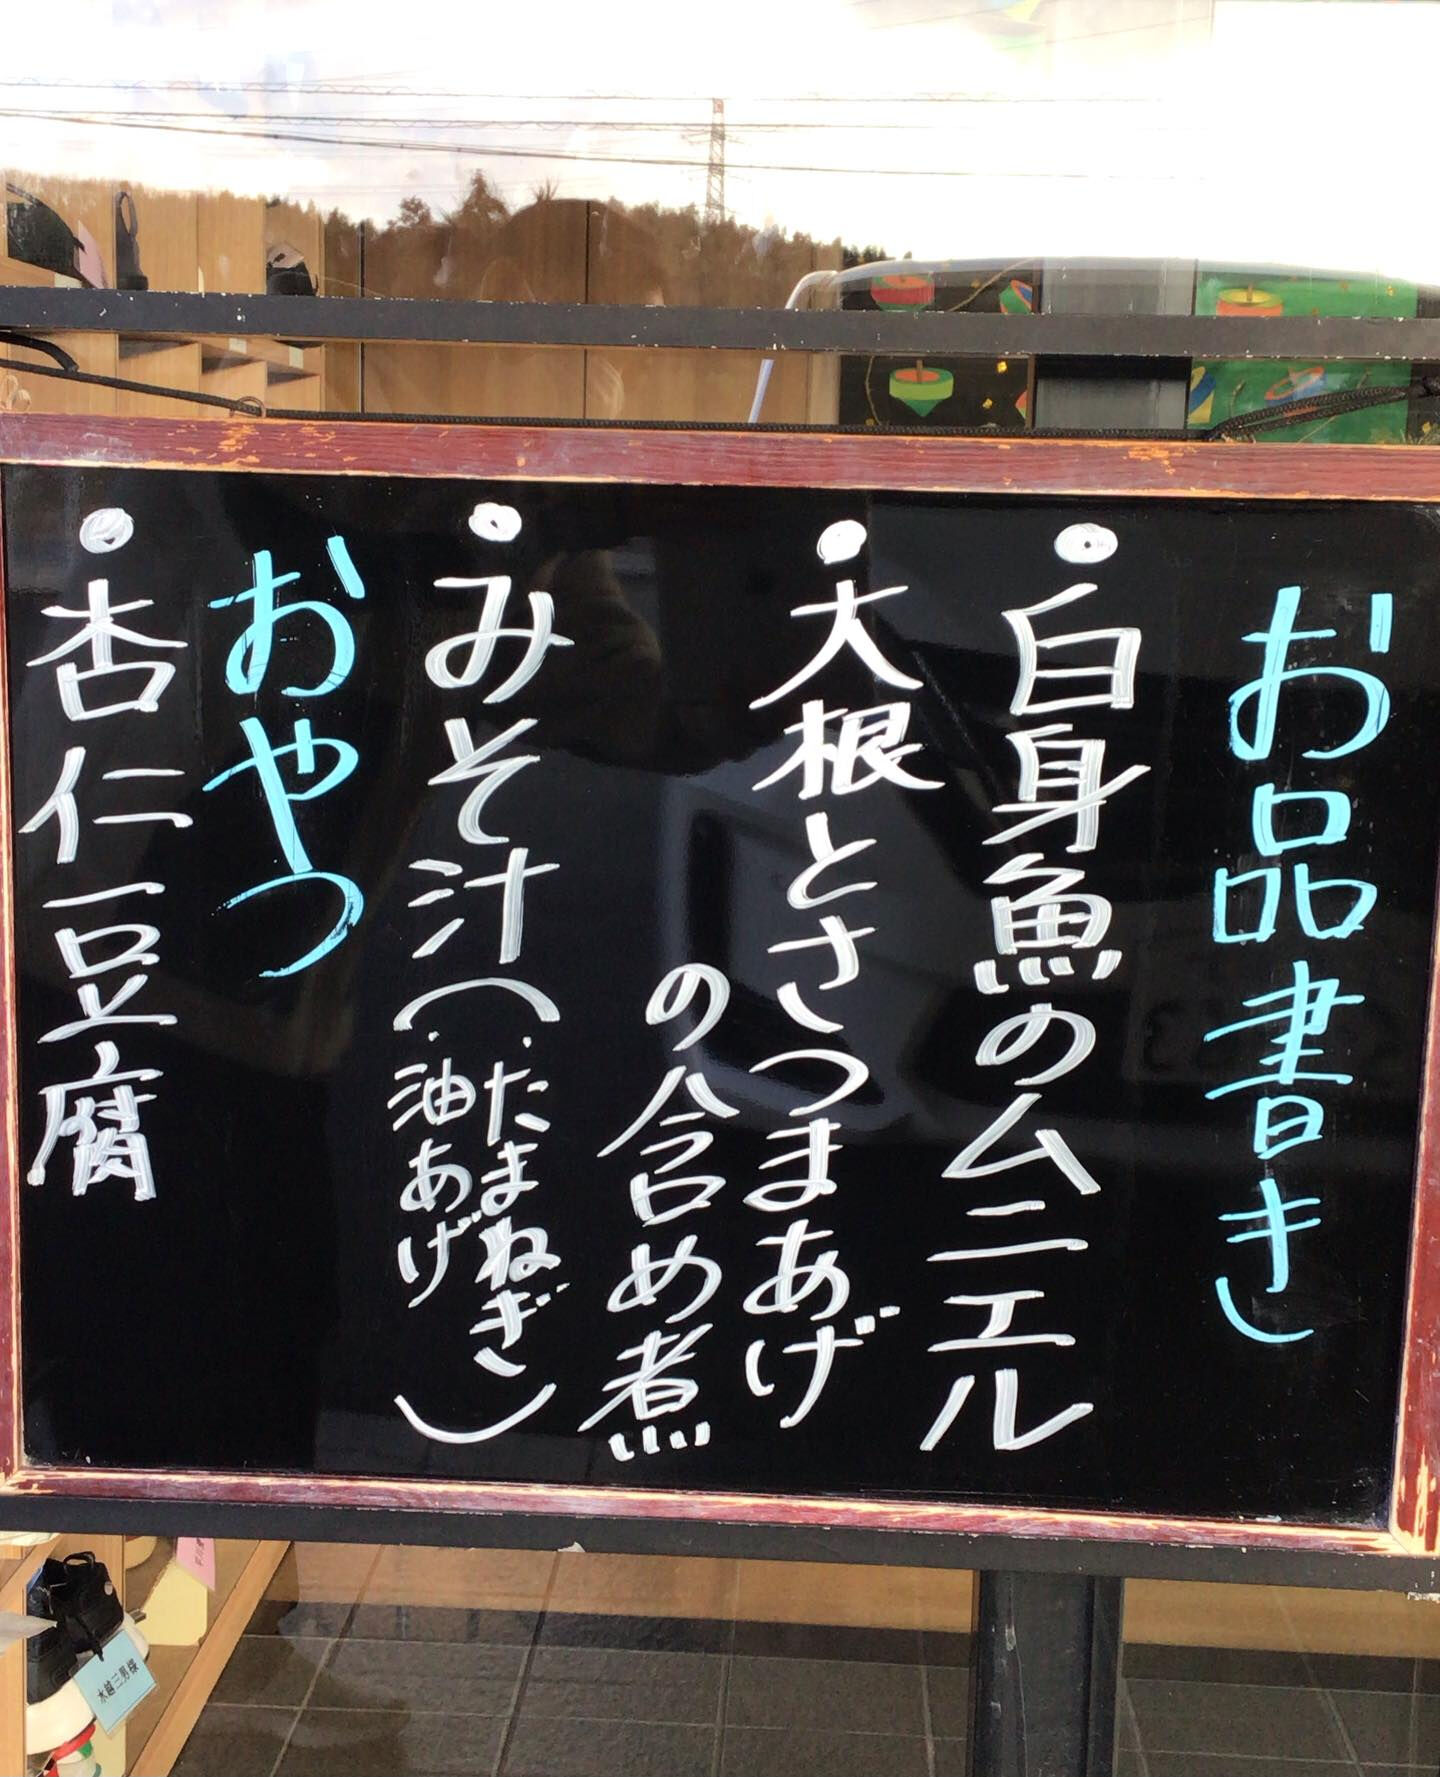 お品書き
・白身魚のムニエル
・大根とさつまあげ
の含め煮
・みそ汁(・たまねぎ
・油あげ)
おやつ
・杏仁豆腐
水越三男様